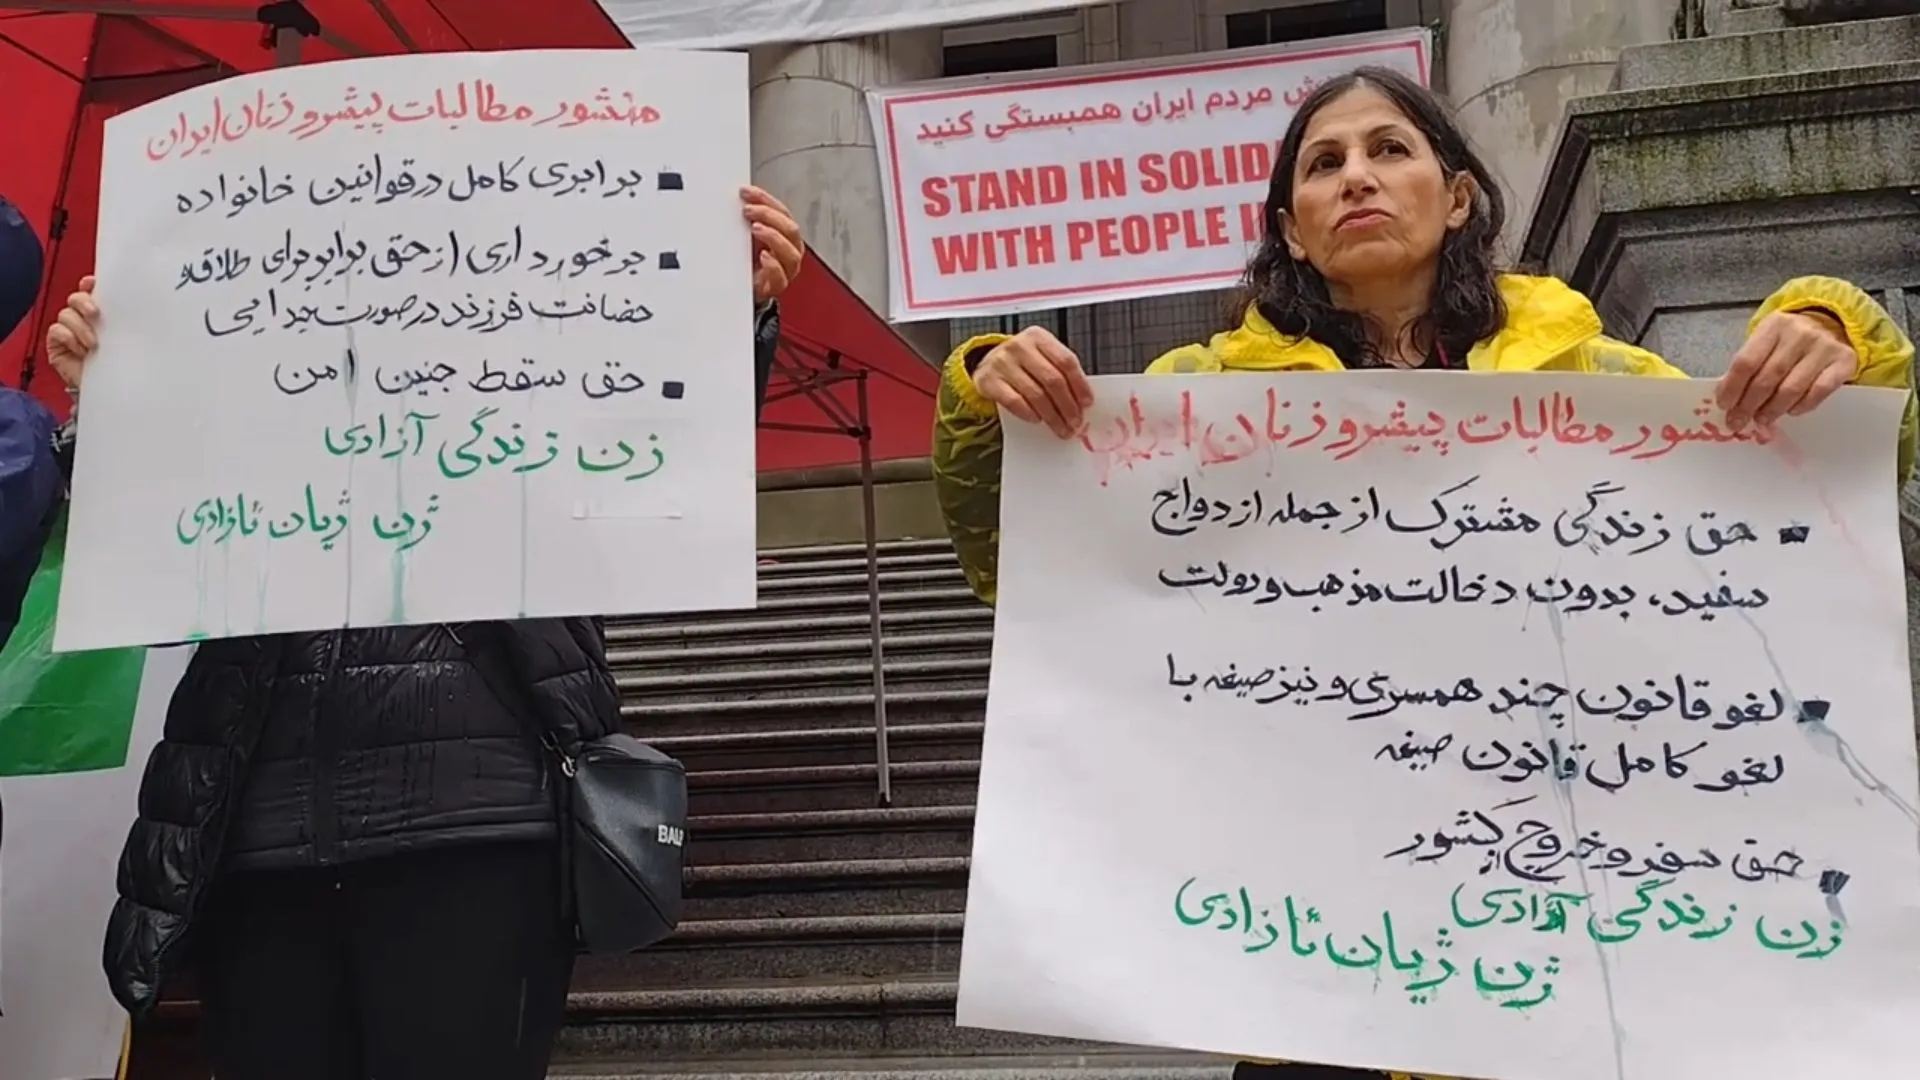 منشور مطالبات پیشرو زنان ایران
برابری کامل در قوانین خانواده
برخورداری از حق برابر برای طلاق و
حضانت فرزند در صورت جدایی
حق سقط جنین امن
زن زندگی آزادی
ژن ژیان ئازادی
مردم ایران همبستگی کنید
STAND IN SOLID
WITH PEOPLE I
منشور مطالبات پیشرو زنان ایران
حق زندگی مشترک از جمله ازدواج
سفید، بدون دخالت مذهب و دولت
لغو قانون چند همسری و نیز صیغه با
لغو کامل قانون صیغه
حق سفر و خروج از کشور
زن زندگی آزادی
ژن ژیان ئازادی
BAL